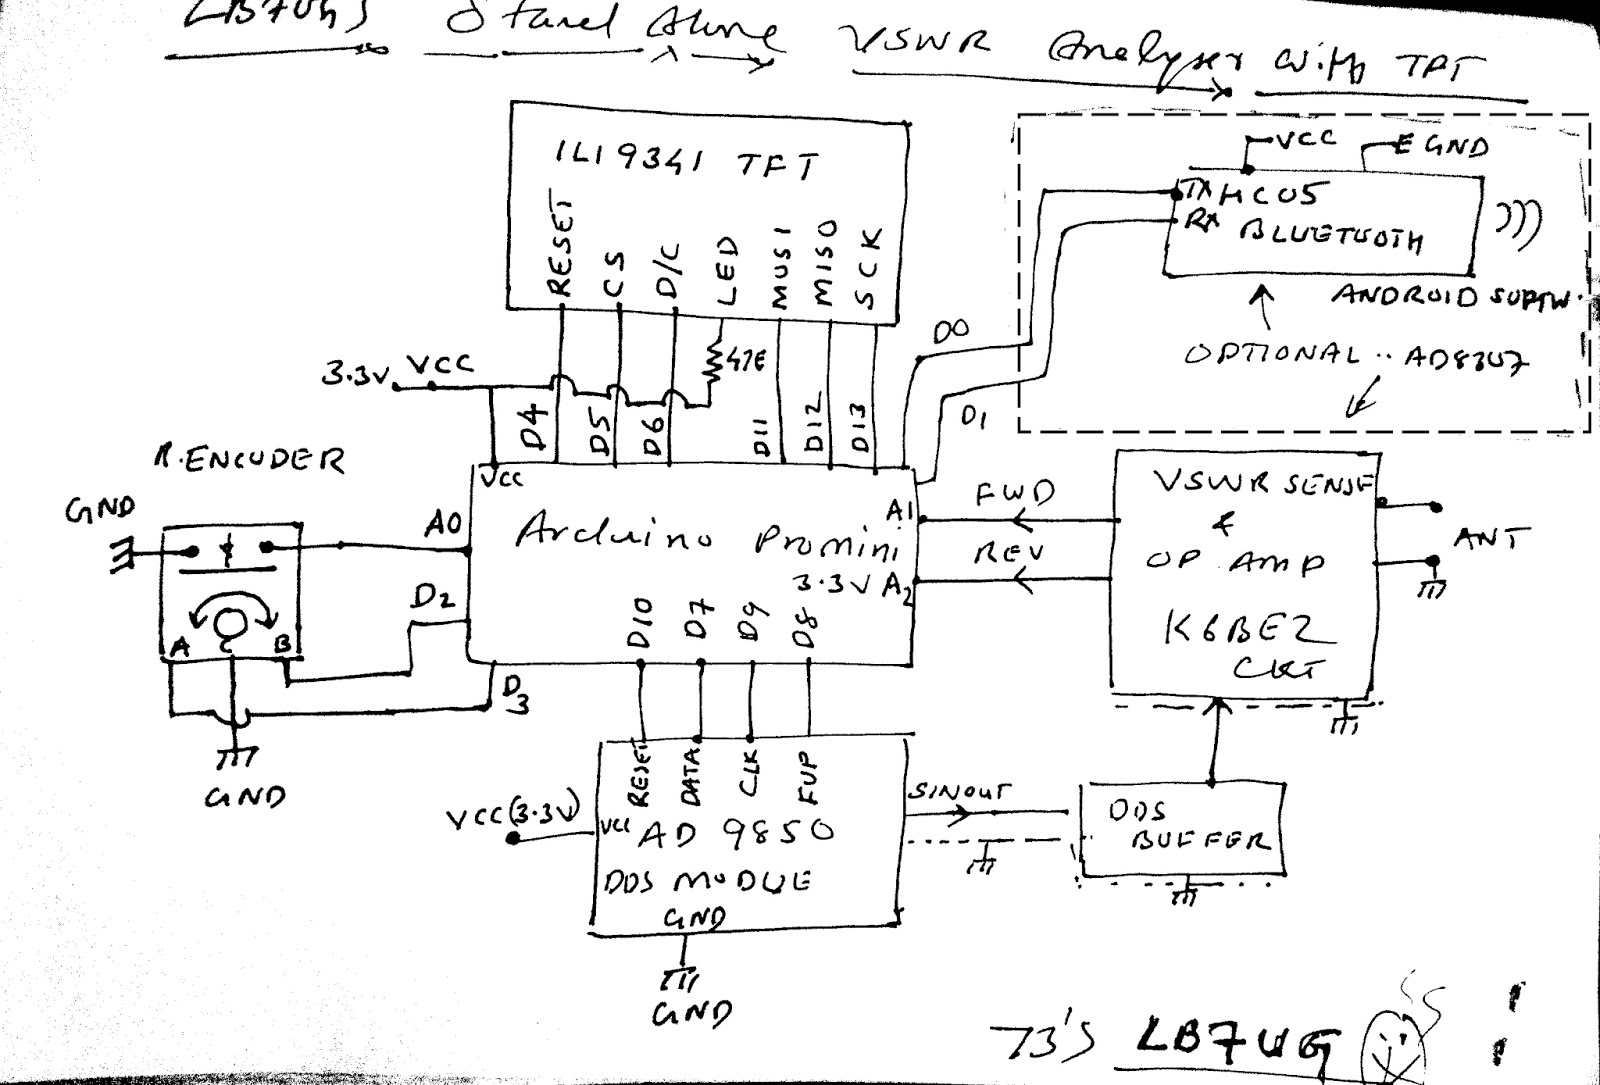 LB7UG's Stand Alone VSWR Analyser with TFT
ILI9341 TFT
RESET
CS
D/C
LED
MOSI
MISO
SCK
VCC
E GND
TX HC05
RX BLUETOOTH
ANDROID SOFTW.
OPTIONAL .. AD8307
D0
D1
47E
3.3V VCC
D4
D5
D6
D11
D12
D13
R.ENCODER
GND
A0
D2
A
C
B
D3
GND
VCC
Arduino Promini
3.3V
A1
A2
D10
D7
D9
D8
FWD
REV
VSWR SENSE
&
OP AMP
K6BEZ
CKT
ANT
RESET
DATA
CLK
FUP
VCC(3.3V)
VCC
AD 9850
DDS MODULE
GND
GND
SINOUT
DDS
BUFFER
73's LB7UG